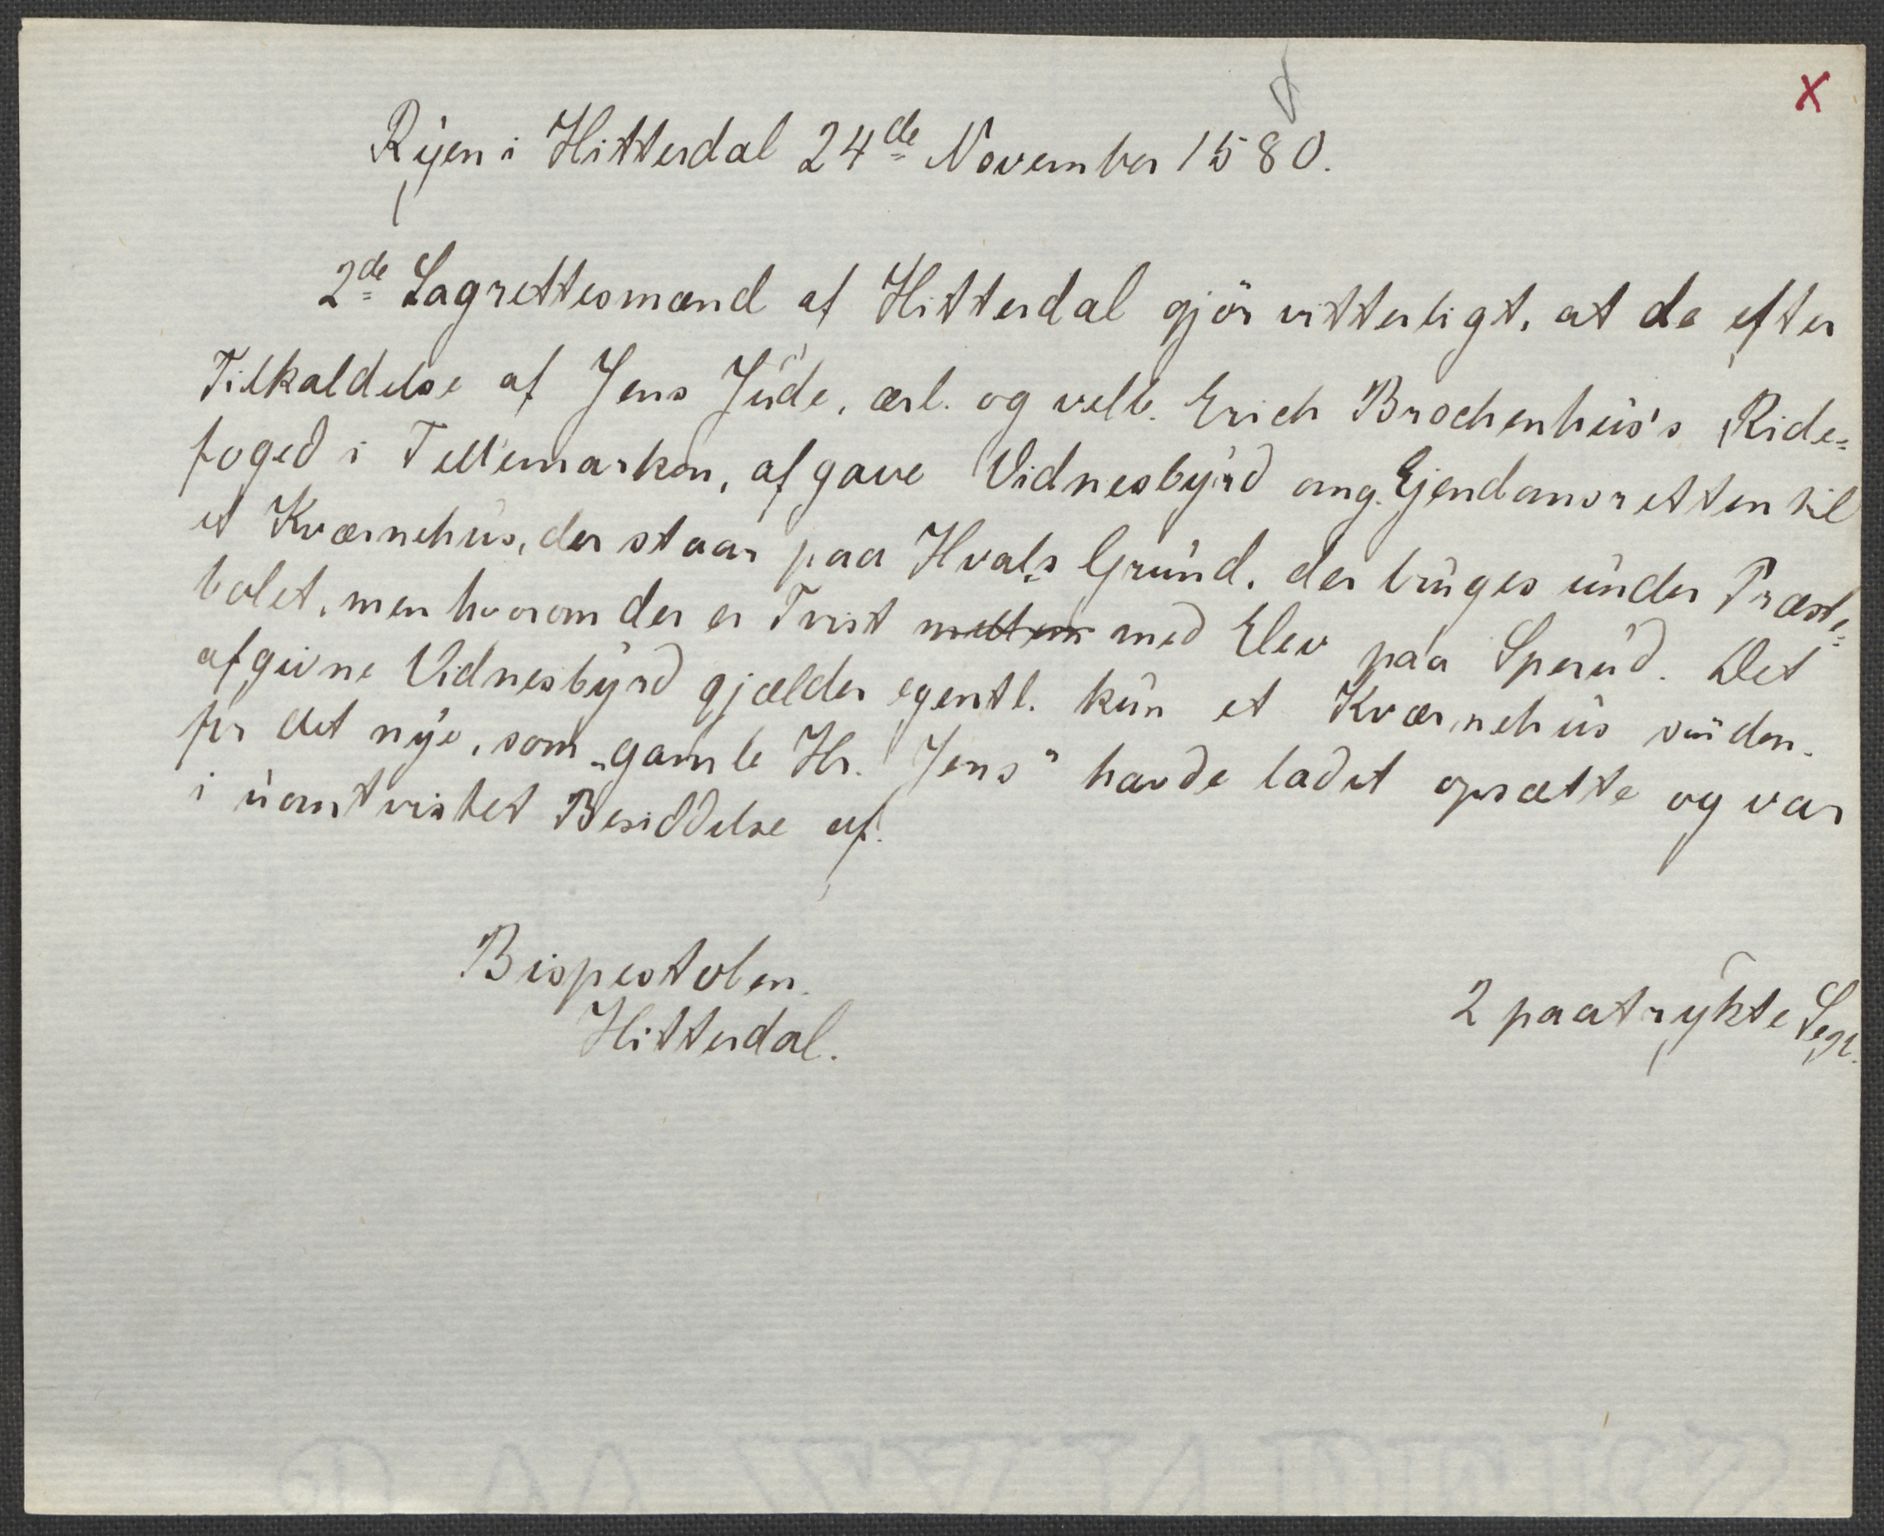 x
Ryen i Hitterdal 24de November 1580.
2de Lagrettesmænd af Hitterdal gjör vitterligt, at de efter
Tilkaldelse af Jens Jude, ærl. og velb. Erich Brochenhus's Ride=
foged i Tellemarken, afgave Vidnesbyrd ang. Ejendomsretten til
et Kværnehus, der staar paa Hvals Grund, der bruges under Præste=
bolet, men hvorom der er Tvist mellem med Elev paa Sperud. Det
afgivne Vidnesbyrd gjælder egentl. kun et Kværnehus vüden-
for det nye, som "gamle Hr. Jens" havde ladet opsætte og var
i uomtvistet Besiddelse af.
Bispestolen.
Hitterdal.
2 paatrykte Segl.